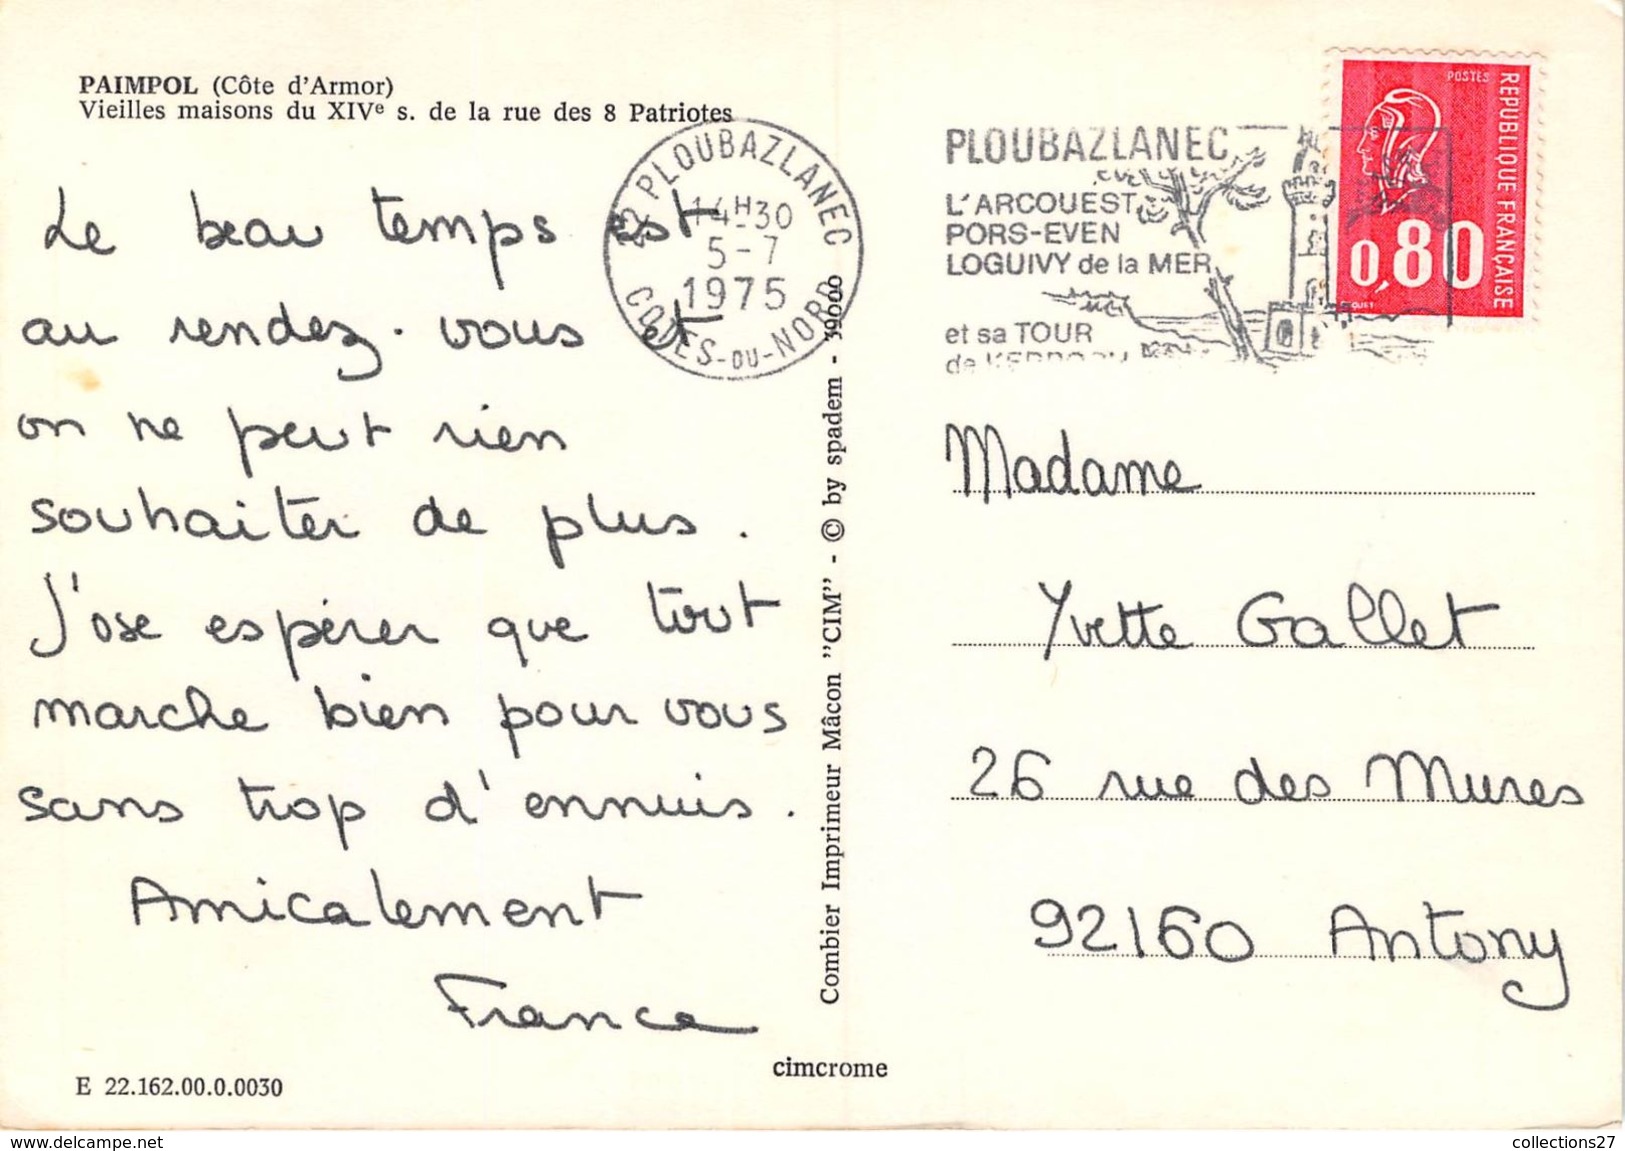 PAIMPOL (Côte d'Armor)
Vieilles maisons du XIVe s. de la rue des 8 Patriotes
Le beau temps est
au rendez-vous et
on ne peut rien
souhaiter de plus.
J'ose espérer que tout
marche bien pour vous
sans trop d'ennuis.
Amicalement
France
E 22.162.00.0.0030
22 PLOUBAZLANEC
14H30
5-7
1975
COTES-DU-NORD
Combier Imprimeur Mâcon "CIM" - © by spadem - 39000
cimcrome
PLOUBAZLANEC
L'ARCOUEST
PORS-EVEN
LOGUIVY de la MER
et sa TOUR
de
POSTES
REPUBLIQUE FRANÇAISE
0,80
Madame
Yvette Gallet
26 rue des Mures
92160 Antony
https://www.delcampe.net
collections27